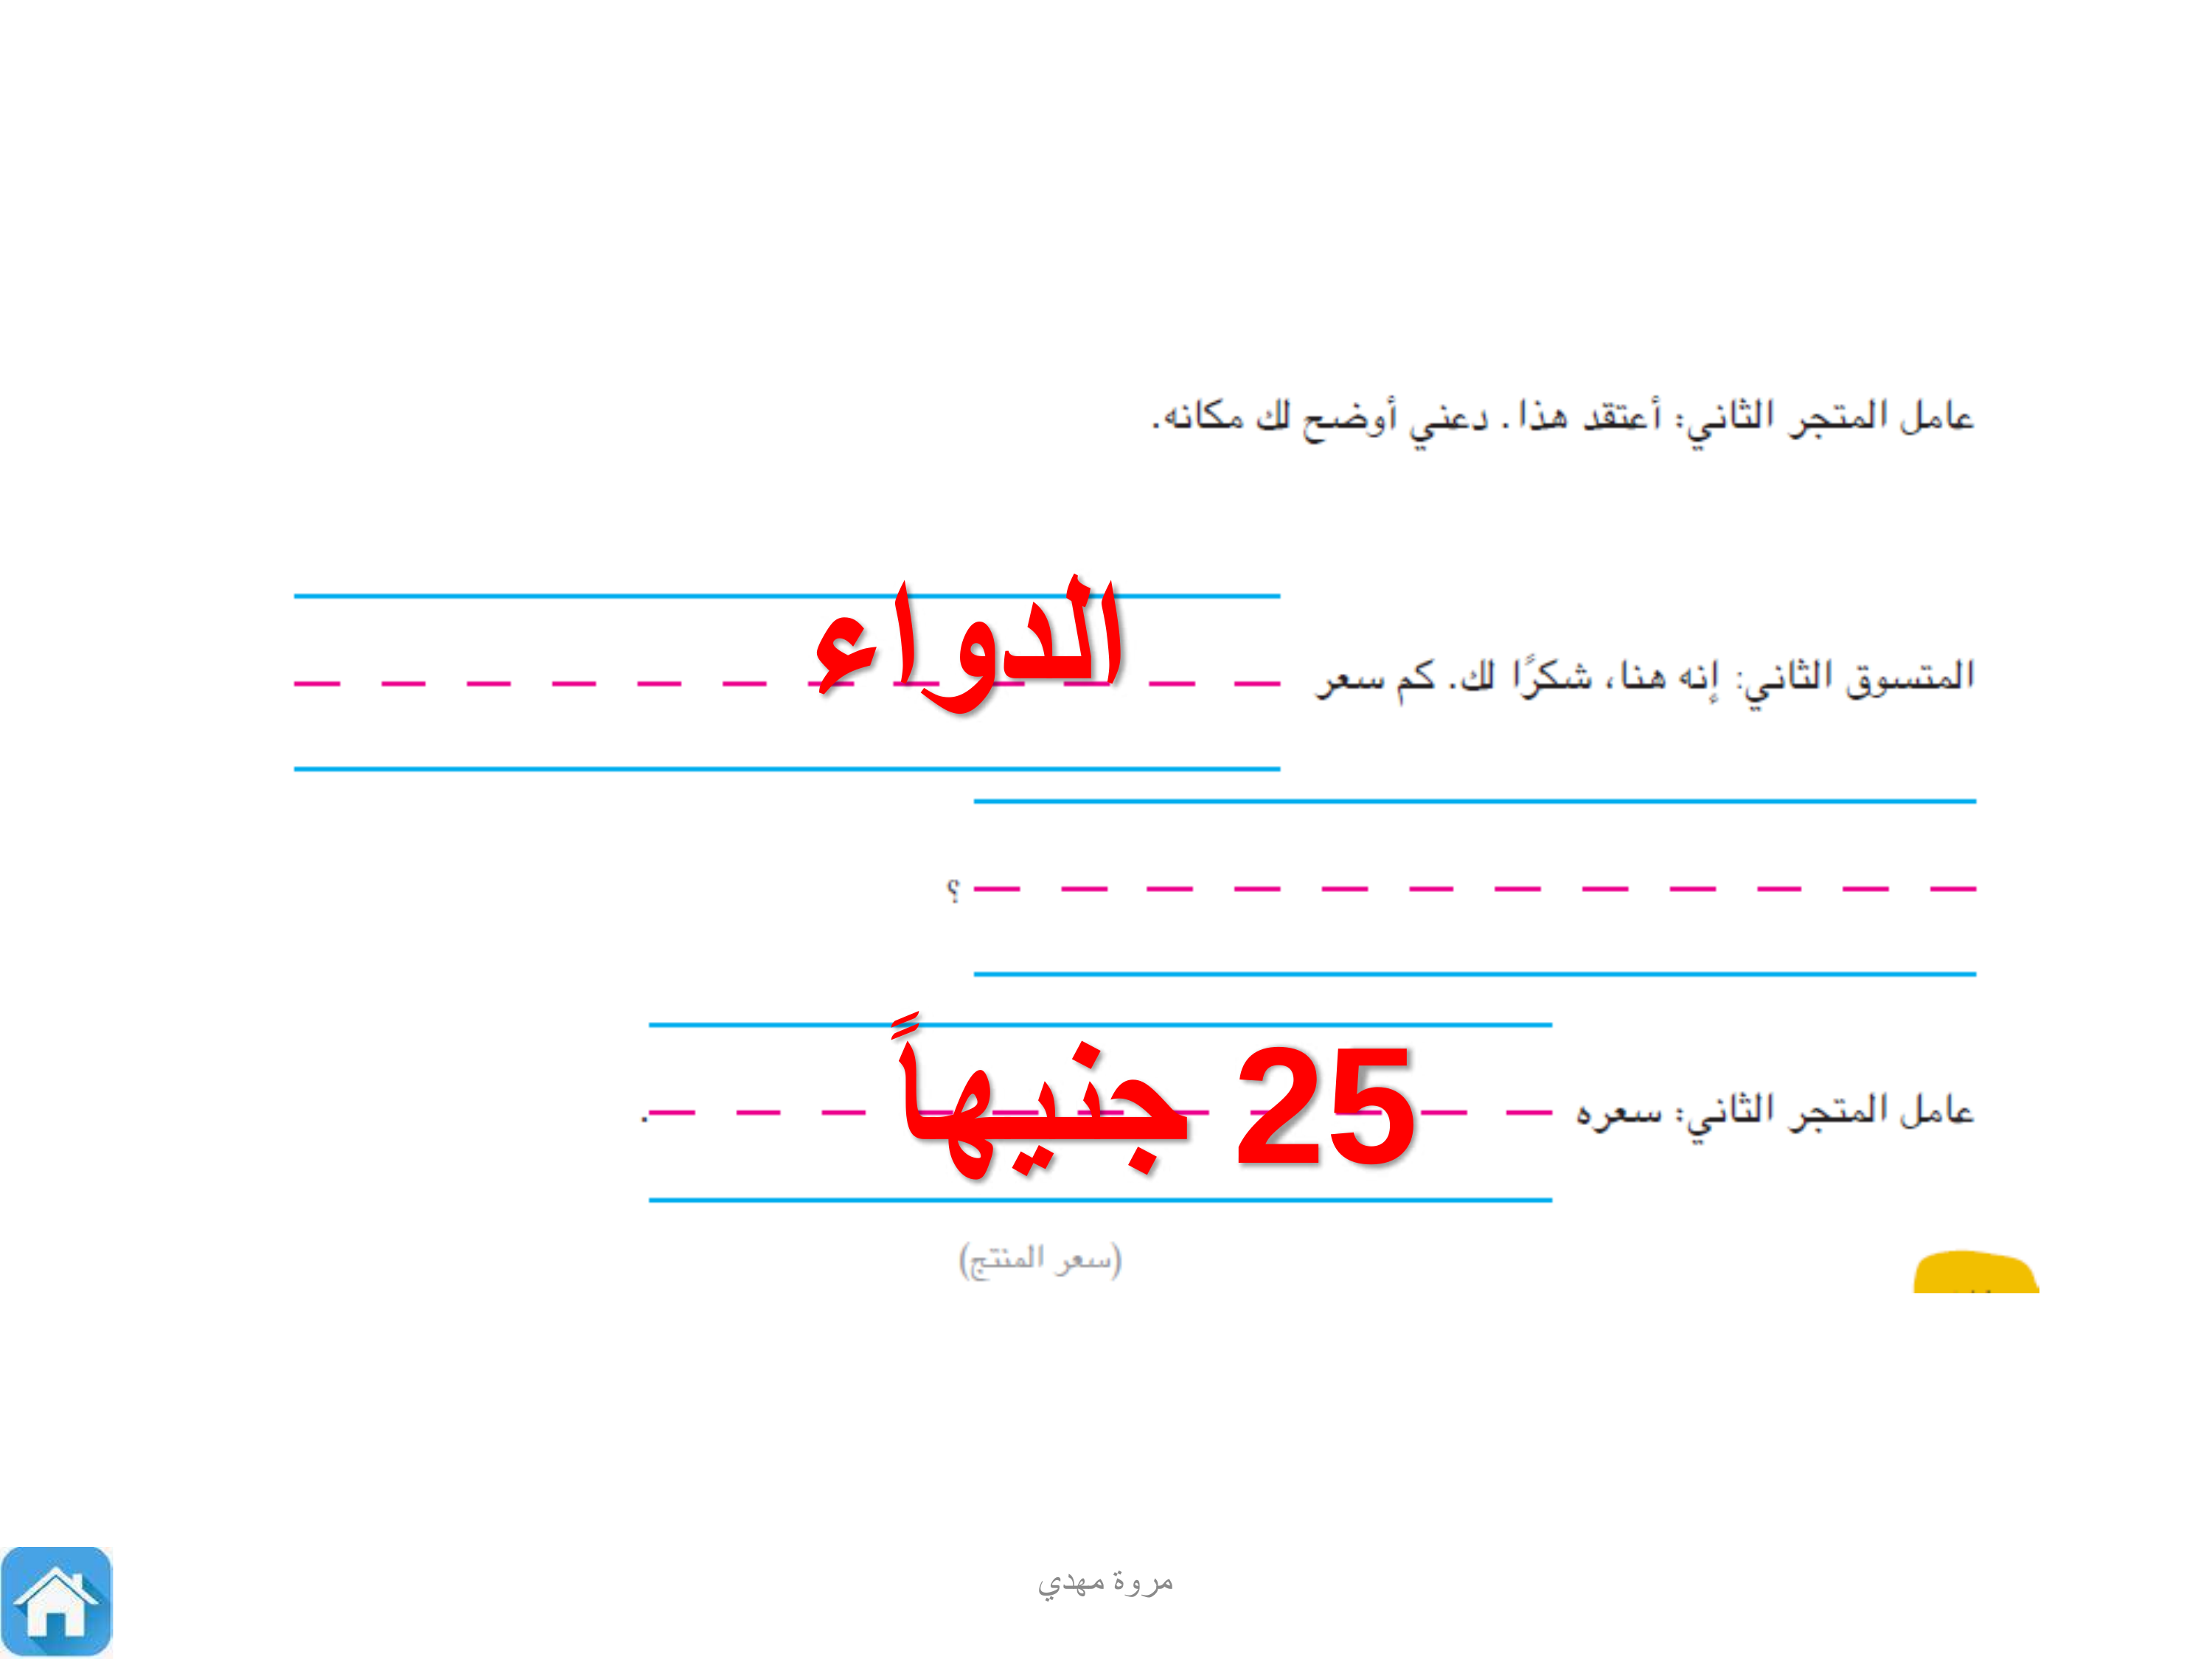 عامل المتجر الثاني: أعتقد هذا. دعني أوضح لك مكانه.
المتسوق الثاني: إنه هنا، شكرًا لك. كم سعر الدواء
؟
عامل المتجر الثاني: سعره 25 جنيهاً.
(سعر المنتج)
مروة مهدي